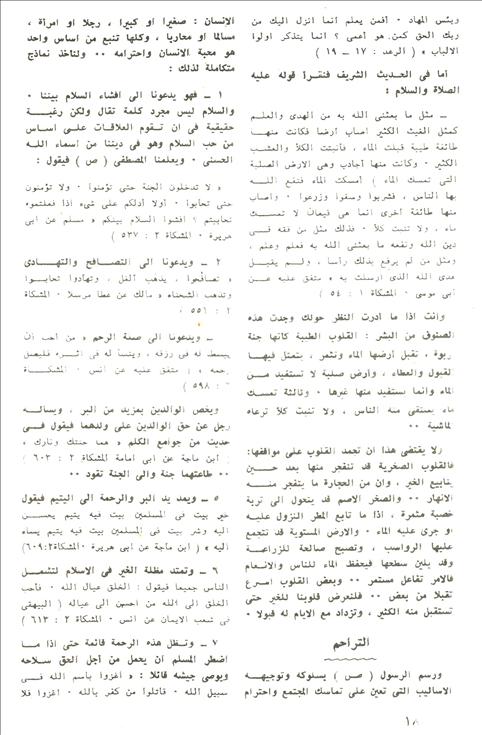 وبئس المهاد ٠ أفمن يعلم أنما أنزل اليك من
ربك الحق كمن هو أعمى ؟ انما يتذكر أولوا
الالباب » ( الرعد : ١٧ ــ ١٩ )
أما فى الحديث الشريف فنقرأ قوله عليه
الصلاة والسلام :
ــ مثل ما بعثنى الله به من الهدى والعلم
كمثل الغيث الكثير أصاب أرضا فكانت منها
طائفة طيبة قبلت الماء ، فأنبتت الكلأ والعشب
الكثير ٠ وكانت منها أجادب وهى الأرض الصلبة
التى تمسك الماء ) أمسكت الماء فنفع الله
بها الناس ، فشربوا وسقوا وزرعوا ٠ وأصاب
منها طائفة أخرى انما هى قيعان لا تمسك
ماء ، ولا تنبت كلأ ٠ فذلك مثل من فقه فى
دين الله ونفعه ما بعثنى الله به فعلم وعلم ،
ومثل من لم يرفع بذلك رأسا ، ولم يقبل
هدى الله الذى أرسلت به » متفق عليه عن
أبى موسى ٠ المشكاة ١ : ٥٤ )
وانت اذا ما أدرت النظر حولك وجدت هذه
الصنوف من البشر : القلوب الطيبة كأنها جنة
ربوة ، تقبل أرضها الماء وتثمر ، يتمثل فيها
القبول والعطاء ، وأرض صلبة لا تستفيد من
الماء وانما يستفيد منها غيرها ٠ وثالثة تمسك
ماء يستقى منه الناس ، ولا تنبت كلأ ترعاه
لماشية ٠٠
ولا يقتضى هذا أن تجمد القلوب على مواقفها:
فالقلوب الصخرية قد تنفجر منها بعد حين
ينابيع الخير ، وان من الحجارة ما يتفجر منه
الانهار ٠٠ والصخر الأصم قد يتحول الى تربة
خصبة مثمرة ، اذا ما تابع المطر النزول عليه
أو جرى عليه الماء ٠ والأرض المستوية قد تتجمع
عليها الرواسب ، وتصبح صالحة للزراعة
وقد يلين سطحها فيحفظ الماء للناس والأنعام
فالأمر تفاعل مستمر ٠٠ وبعض القلوب أسرع
تقبلا من بعض ٠٠ فلنعرض قلوبنا للخير حتى
تستقبل منه الكثير ، وتزداد مع الأيام له قبولا ٠
التراحم
ورسم الرسول ( ص ) بسلوكه وتوجيهه
الأساليب التى تعين على تماسك المجتمع واحترام
الانسان : صغيرا أو كبيرا ، رجلا أو امرأة ،
مسالما أو محاربا ، وكلها تنبع من أساس واحد
هو محبة الانسان واحترامه ٠٠ ولنأخذ نماذج
متكاملة لذلك :
١ ــ فهو يدعونا الى افشاء السلام بيننا ٠
والسلام ليس مجرد كلمة تقال ولكن رغبة
حقيقية فى أن تقوم العلاقات على أساس
من حب السلام وهو فى ديننا من أسماء الله
الحسنى ٠ ويعلمنا المصطفى ( ص ) فيقول :
« لا تدخلون الجنة حتى تؤمنوا ٠ ولا تؤمنون
حتى تحابوا ٠ أولا أدلكم على شىء اذا فعلتموه
تحاببتم ؟ افشوا السلام بينكم » مسلم عن أبى
هريرة ٠ المشكاة ٢ : ٥٣٧ )
٢ ــ ويدعونا الى التصافح والتهادى
« تصافحوا ، يذهب الغل ، وتهادوا تحابوا
وتذهب الشحناء » مالك عن عطا مرسلا ٠ المشكاة
٢ : ٥٥٦ ٠
ــ ويدعونا الى صلة الرحم « من أحب أن
يبسط له فى رزقه ، وينسأ له فى أثره فليصل
رحمه » : متفق عليه عن أنس ٠ المشكاة
: ٥٩٨ )
ويخص الوالدين بمزيد من البر ، ويسأله
رجل عن حق الوالدين على ولدهما فيقول فى
حديث من جوامع الكلم « هما جنتك ونارك »
( ابن ماجة عن أبى أمامة المشكاة ٢ : ٦٠٣ )
٠٠ طاعتهما جنة والى الجنة تقود ٠٠
٥ ــ ويمد يد البر والرحمة الى اليتيم فيقول
خير بيت فى المسلمين بيت فيه يتيم يحسن
اليه وشر بيت فى المسلمين بيت فيه يتيم يساء
اليه » ( ابن ماجة عن أبى هريرة ٠ المشكاة٦٠٩:٢)
٦ ــ وتمتد مظلة الخير فى الاسلام لتشمل
الناس جميعا فيقول : الخلق عيال الله ٠ فأحب
الخلق الى الله من أحسن الى عياله ( البيهقى
فى شعب الايمان عن أنس ٠ المشكاة ٢ : ٦١٣ )
٧ ــ وتظل هذه الرحمة قائمة حتى اذا ما
اضطر المسلم أن يحمل من أجل الحق سلاحه
ويوصى جيشه قائلا : « اغزوا باسم الله فى
سبيل الله ٠ قاتلوا من كفر بالله ٠ اغزوا فلا
١٨